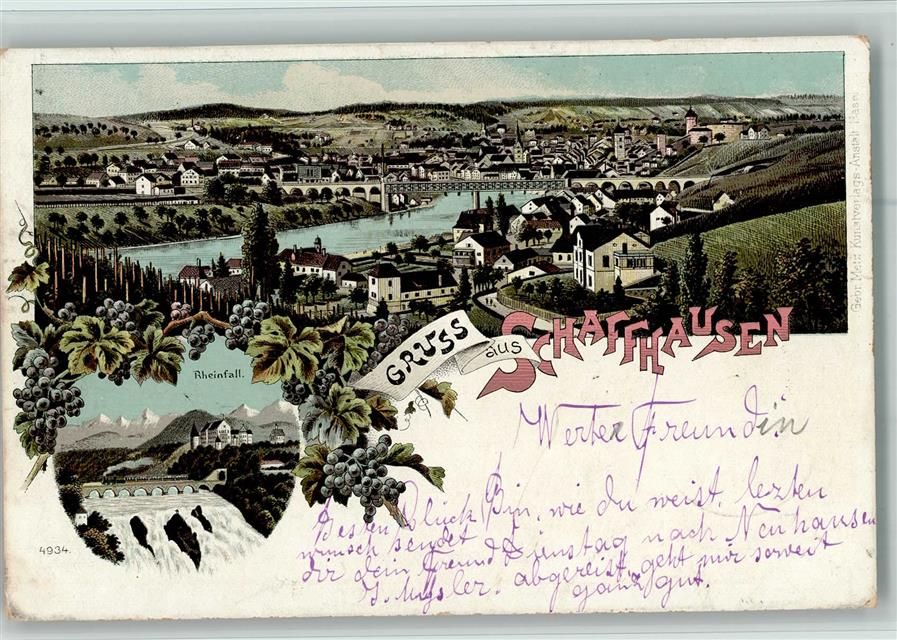 Gebr. Metz Kunstverlags-Anstalt Basel
GRUSS aus SCHAFFHAUSEN
Rheinfall.
Werter Freundin
Besten Glück
wunsch sendet
dir dein Freund
J.
Bin, wie du weist, lezten
Dienstag nach Neuhausen
abgereist, geht mir soweit
ganz gut.
4934.